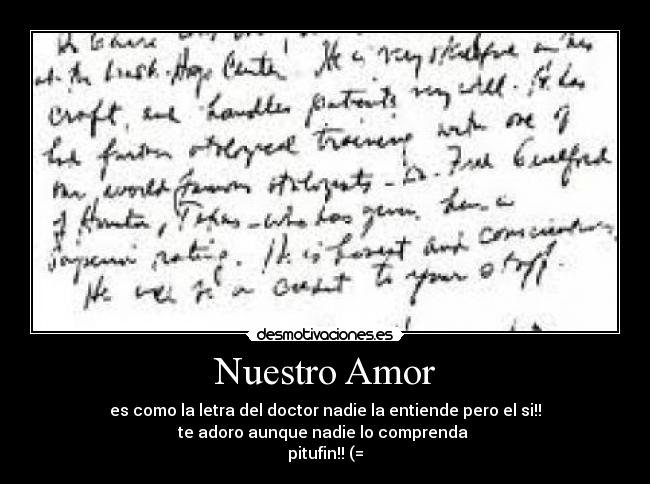 at the Hope Center. He is very skillful in his
craft, and handles patients very well. He has
had further otological training with one of
our world famous otologists - Dr. Fred Guilford
of Houston, Texas - who has given him a
superior rating. He is honest and conscientious.
He will be a credit to your staff.
desmotivaciones.es
Nuestro Amor
es como la letra del doctor nadie la entiende pero el si!!
te adoro aunque nadie lo comprenda
pitufin!! (=